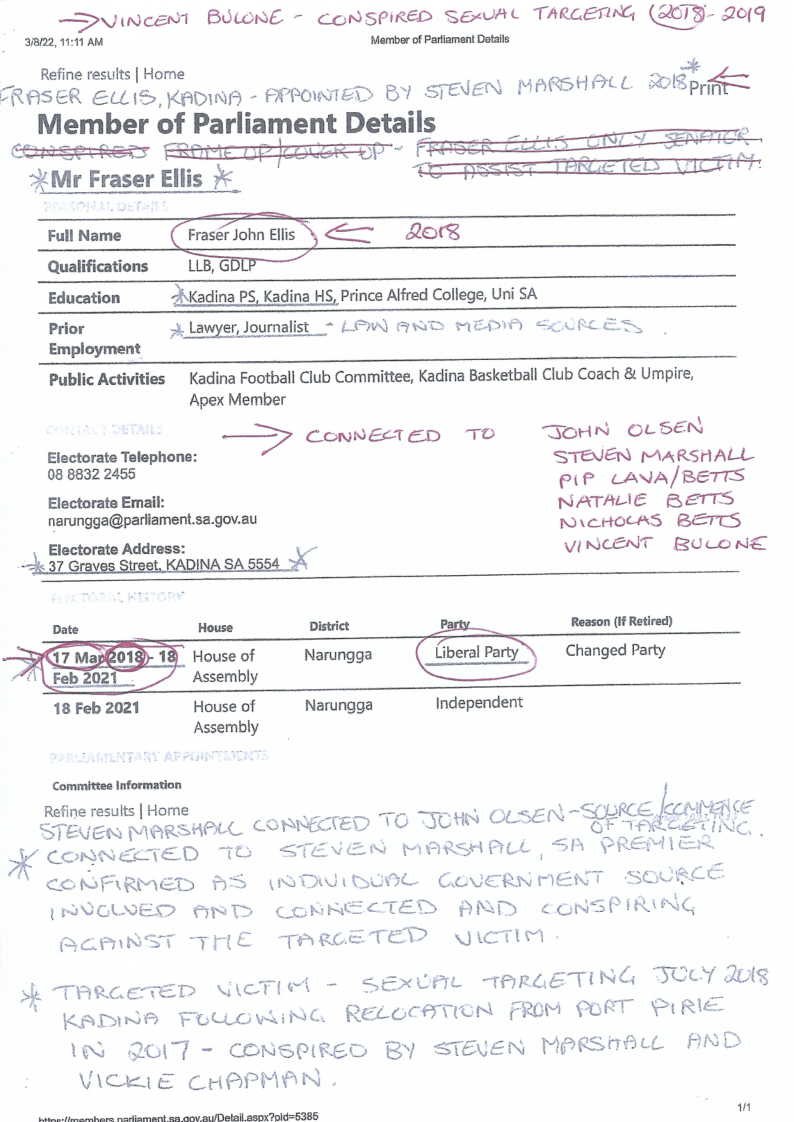 → VINCENT BULONE - CONSPIRED SEXUAL TARGETING (2018) - 2019
3/8/22, 11:11 AM
Member of Parliament Details
Refine results | Home
FRASER ELLIS, KADINA - APPOINTED BY STEVEN MARSHALL 2018
Print
Member of Parliament Details
CONSPIRED FRAME UP/COVER UP - FRASER ELLIS ONLY SENATOR
TO ASSIST TARGETED VICTIM.
Mr Fraser Ellis
PERSONAL DETAILS
Full Name Fraser John Ellis ← 2018
Qualifications LLB, GDLP
Education Kadina PS, Kadina HS, Prince Alfred College, Uni SA
Prior Lawyer, Journalist - LAW AND MEDIA SOURCES.
Employment
Public Activities Kadina Football Club Committee, Kadina Basketball Club Coach & Umpire,
Apex Member
CONTACT DETAILS
→ CONNECTED TO JOHN OLSEN
STEVEN MARSHALL
PIP LAVA/BETTS
NATALIE BETTS
NICHOLAS BETTS
VINCENT BULONE
Electorate Telephone:
08 8832 2455
Electorate Email:
narungga@parliament.sa.gov.au
Electorate Address:
37 Graves Street, KADINA SA 5554
ELECTORAL HISTORY
Date House District Party Reason (If Retired)
17 Mar 2018 - 18 House of Narungga Liberal Party Changed Party
Feb 2021 Assembly
18 Feb 2021 House of Narungga Independent
Assembly
PARLIAMENTARY APPOINTMENTS
Committee Information
Refine results | Home
STEVEN MARSHALL CONNECTED TO JOHN OLSEN - SOURCE/COMMENCE
OF TARGETING.
* CONNECTED TO STEVEN MARSHALL, SA PREMIER
CONFIRMED AS INDIVIDUAL GOVERNMENT SOURCE
INVOLVED AND CONNECTED AND CONSPIRING
AGAINST THE TARGETED VICTIM.
* TARGETED VICTIM - SEXUAL TARGETING JULY 2018
KADINA FOLLOWING RELOCATION FROM PORT PIRIE
IN 2017 - CONSPIRED BY STEVEN MARSHALL AND
VICKIE CHAPMAN.
1/1
https://members.parliament.sa.gov.au/Detail.aspx?pid=5385